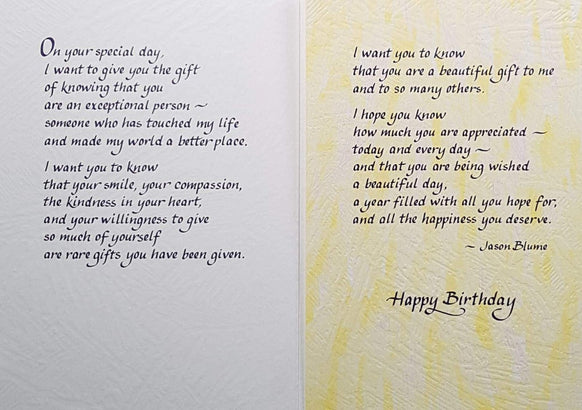 On your special day,
I want to give you the gift
of knowing that you
are an exceptional person ~
someone who has touched my life
and made my world a better place.
I want you to know
that your smile, your compassion,
the kindness in your heart,
and your willingness to give
so much of yourself
are rare gifts you have been given.
I want you to know
that you are a beautiful gift to me
and to so many others.
I hope you know
how much you are appreciated ~
today and every day ~
and that you are being wished
a beautiful day,
a year filled with all you hope for,
and all the happiness you deserve.
~ Jason Blume
Happy Birthday